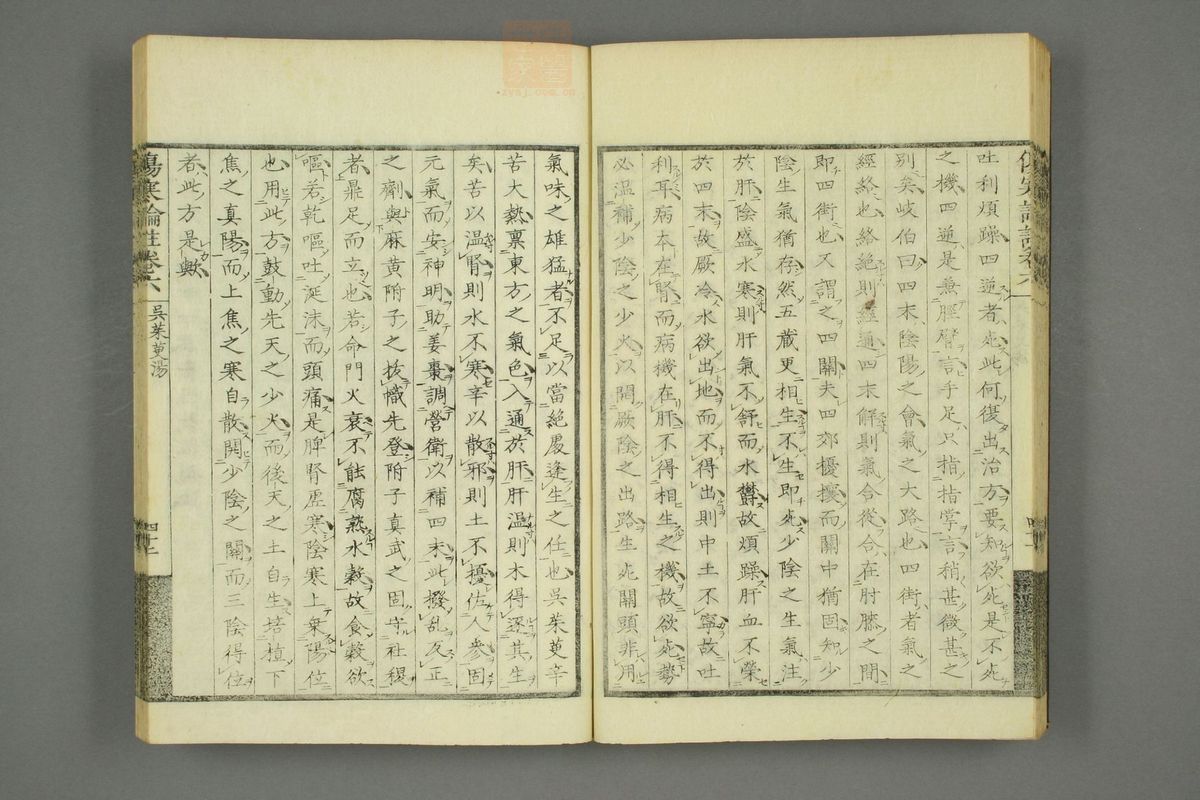 吐利煩躁四逆者死此何復出治方要知欲死是不死
之機四逆是兼脛臂言手足只指指掌言稍甚微甚之
別矣岐伯曰四末陰陽之會氣之大路也四街者氣之
經絡也絡絕則經通四末解則氣合從合在肘膝之間
即四街也又謂之四關夫四郊擾擾而關中猶固知少
陰生氣猶存然五藏更相生不生即死少陰之生氣注
於肝陰盛水寒則肝氣不舒而水欝故煩躁肝血不榮
於四末故厥冷水欲出地而不得出則中土不寧故吐
利耳病本在腎而病機在肝不得相生之機故欲死勢
必溫補少陰之少火以開厥陰之出路生死關頭非用
氣味之雄猛者不足以當絕處逢生之任也吳茱萸辛
苦大熱稟東方之氣色入通於肝肝溫則木得遂其生
矣苦以溫腎則水不寒辛以散邪則土不擾佐人參固
元氣而安神明助姜棗調營衛以補四末此撥亂反正
之劑與麻黃附子之拔幟先登附子真武之固守社稷
者鼎足而立也若命門火衰不能腐熟水穀故食穀欲
嘔若乾嘔吐涎沫而頭痛是脾腎虛寒陰寒上乘陽位
也用此方鼓動先天之少火而後天之土自生培植下
焦之真陽而上焦之寒自散開少陰之關而三陰得位
者此方是歟
傷寒論註卷六
吳茱萸湯
四十二